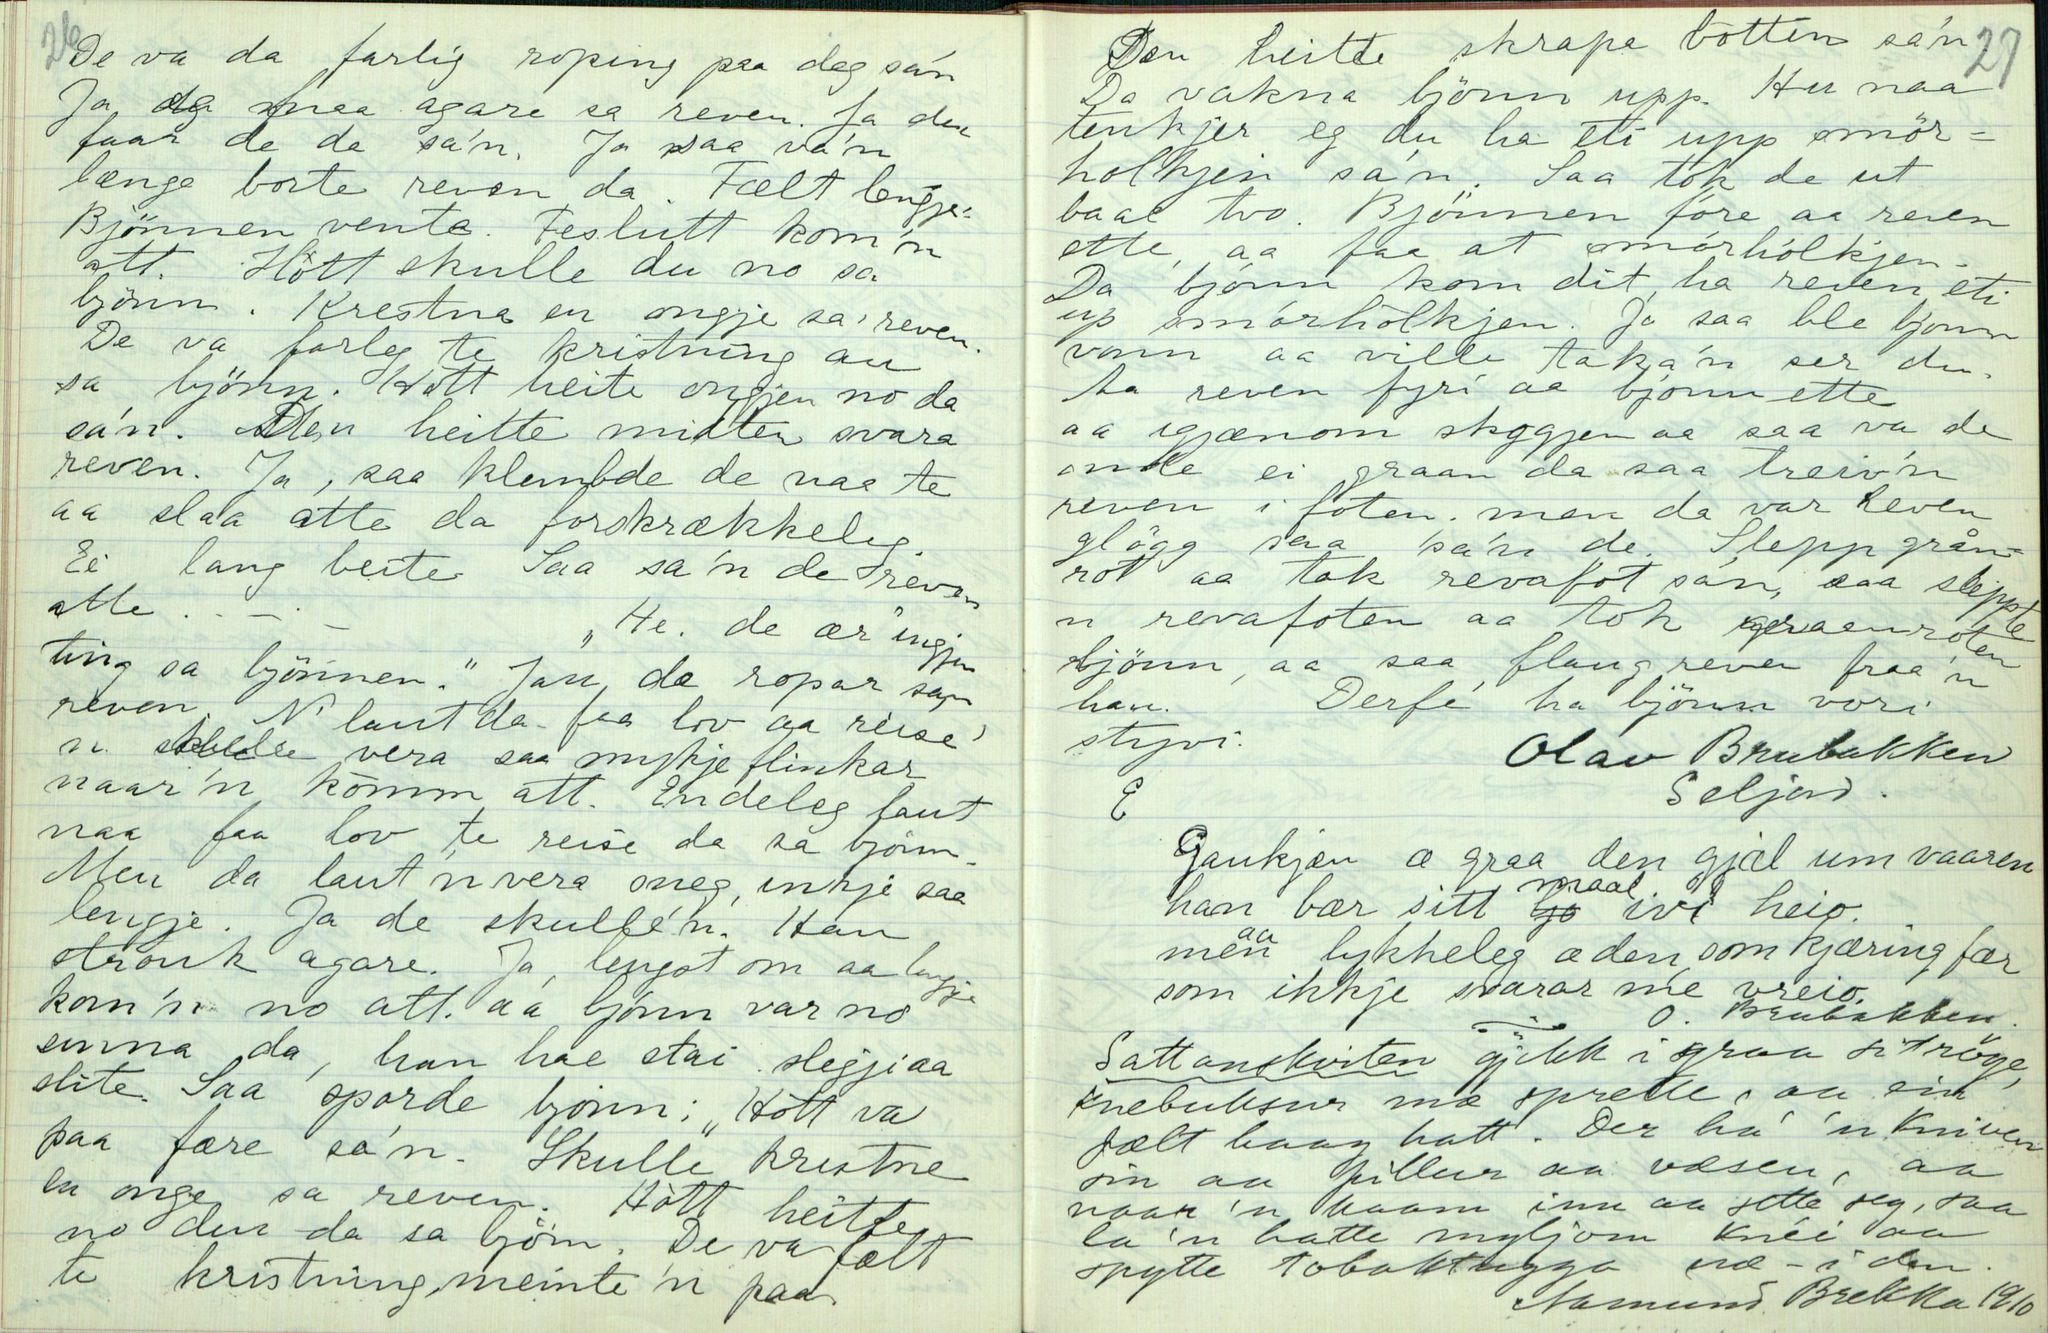 26
De va da farlig roping paa deg sa'n
Ja da maa agare sa reven. Ja den
faar de da sa'n. Ja saa va'n
længe borte reven da. Fælt lengje
Bjönnen venta. Teslutt kom'n
att. Hött skulle du no sa
bjönn. Krestna en ongje sa' reven.
De va farleg te kristning au
sa bjönn. Hött heite ongjen no da
sa'n. Den heitte midten svara
reven. Ja, saa klembde de naa te
aa slaa atte da forskrækkeleg.
Ei lang beite Saa sa'n de reven
atte. — —
"He. de ær ingjen
ting sa bjönnen." Jau, de ropar sa'n
reven. N' laut da faa lov aa reise'
n skulde vera saa mykje flinkar
naar'n komm att. Endeleg laut
naa faa lov te reise da sa bjönn.
Men da laut'n vera sneg, inkje saa
lengje. Ja de skulle'n. Han
strouk agare. Ja, lengst om aa lengje
kom'n no att. aa bjönn var no
sunna da, han hae stai slegji aa
slite. Saa sporde bjönn: "Hött va
paa fære sa'n. Skulle kristne
en onge sa reven. Hött heitte
no den da sa bjönn. De va fælt
te kristning, meinte'n paa.
27
Den heitte skrape botten sa'n
Da vakna bjönn upp. Hu naa
tenkjer eg du ha eti upp smör=
holkjen sa'n. Saa tok de ut
baae tvo. Bjönnen före aa reven
ette, aa faa at smörhölkjen.
Da bjönn kom dit, ha reven eti
up smörhölkjen. Ja saa ble bjonn
vonn aa ville taka'n ser du.
Aa reven fyri aa bjönn ette
aa igjænom skogjen aa saa va de
onde ei graan da saa treiv'n
reven i foten. men da var reven
glögg saa sa'n de. Slepp grån=
rot aa tok revafot sa'n, saa sleppte
n revafoten aa tok graenroten
bjönn, aa saa flaug reven fraa'n
han. Derfé ha bjönn vori
styvi.
Olav Brubakken
Seljord.
E
Gaukjen æ graa den gjæl um vaaren
han bær sitt maal ivi heio.
men aa lykkeleg æ den som kjæring fær
som ikkje svarar me vreio.
O. Brubakken.
Sattanskviten gjekk i graa sitröge,
knebuksur mæ sprette, aa ein
fælt haag hatt. Der ha 'n kniven
sin aa pillur aa væsen, aa
naar 'n kaam inn aa sette seg, saa
la'n hatte myljom knéi aa
spytte tobaktugga næ - i den.
Aamund Brekka 1910